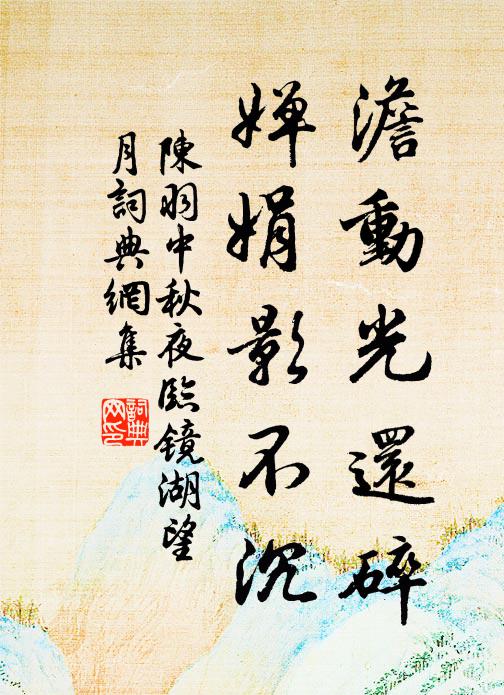 澹動光還碎
嬋娟影不沉
陳羽中秋夜臨镜湖望
月詞典網集
詞典
网印